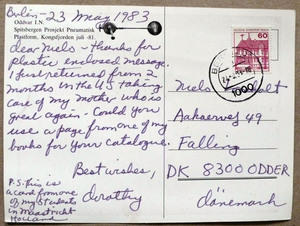 Berlin - 23 May 1983
Oddvar I.N.
Spitsbergen Prosjekt Pneumatisk
Plastform, Kongsfjorden juli -81.
Dear Niels - Thanks for
plastic enclosed message.
I just returned from 2
months in the US taking
care of my mother who is
great again. Could you
use a page from one of my
books for your catalogue.
Best wishes,
Dorothy
P.S. This is
a card from one
of my students
in Maastricht
Holland
60
1000
Niels
Aakærvej 49
Falling
DK 8300 ODDER
Dänemark